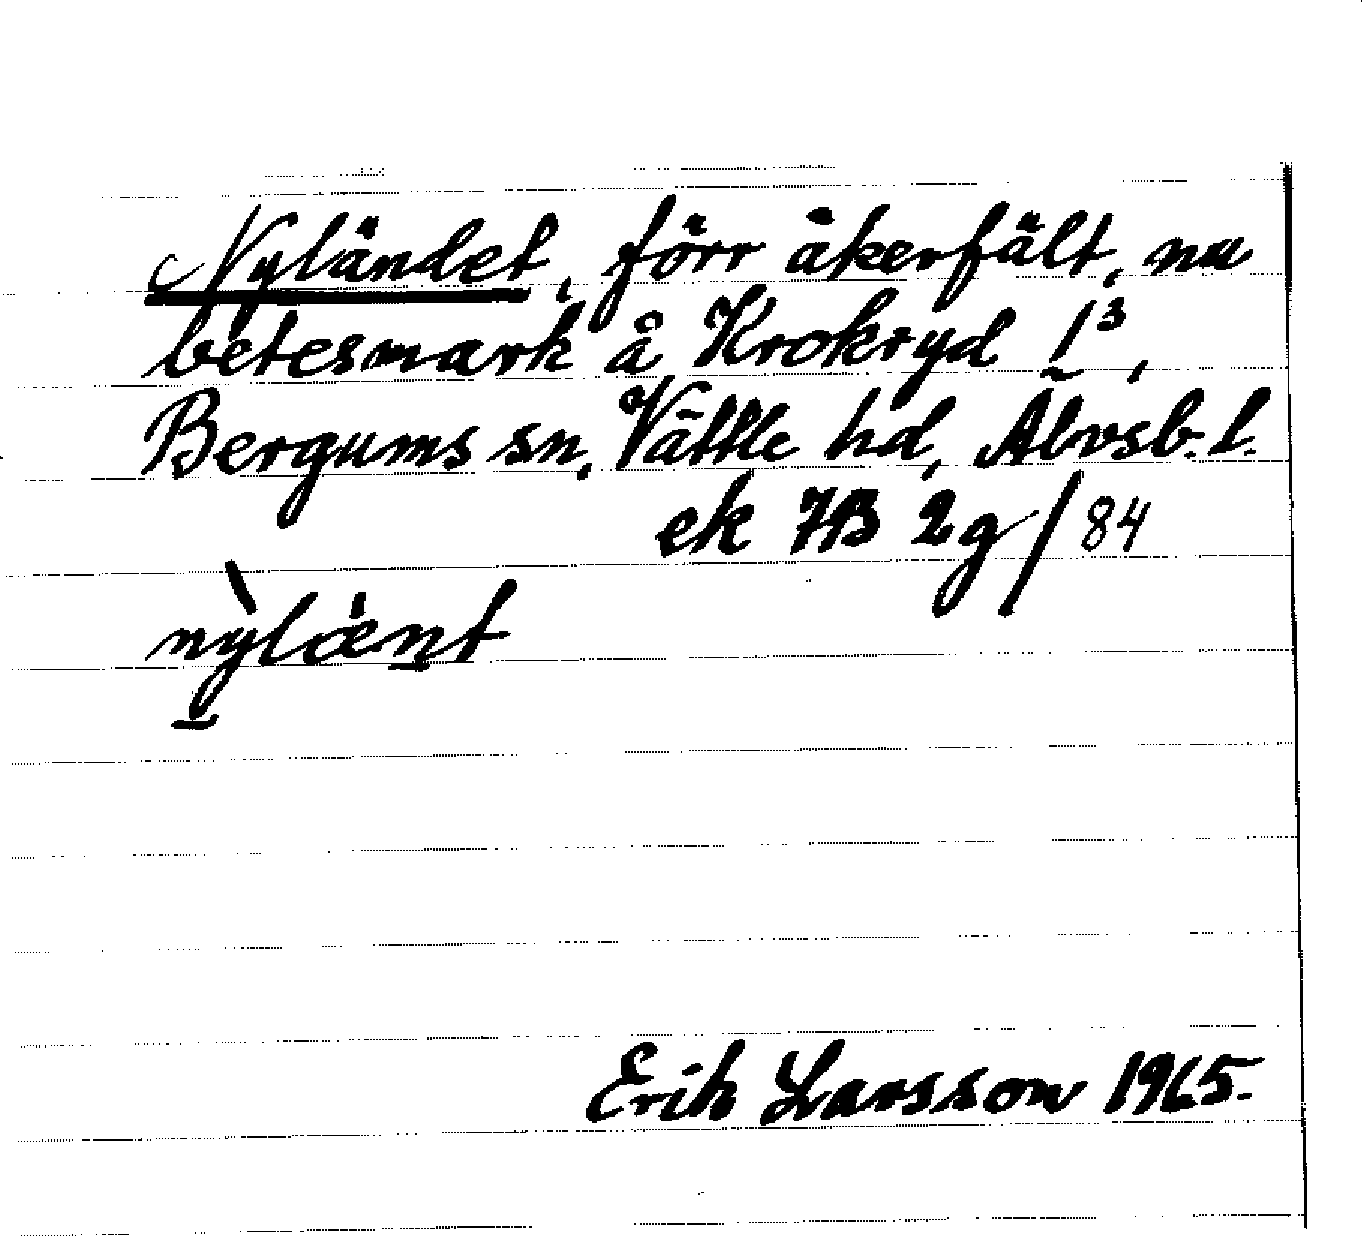 Nyländet, förr åkerfält, nu
betesmark å Krokryd 1³,
Bergums sn, Vättle hd, Älvsb. l.
ek 7B 2g/84
nỳlæ̇nt
Erik Larsson 1965.